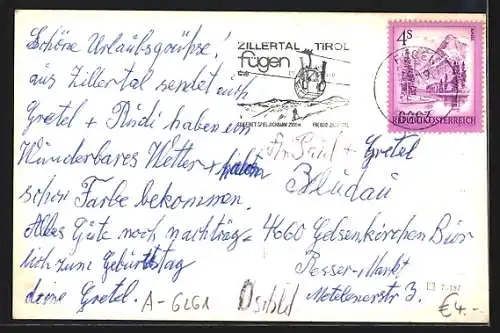 Schöne Urlaubsgrüsse!
aus Zillertal sendet euch
Gretel + Rudi haben ein
Wunderbares Wetter + haben
schon Farbe bekommen.
Alles Gute noch nachträg=
lich zum Geburtstag
deine Gretel.
A-6261
ZILLERTAL TIROL
fügen
4 S
REPUBLIK ÖSTERREICH
An Paul + Gretel
Bludau
4660 Gelsenkirchen Buer
Resser-Markt
3.
€4.-